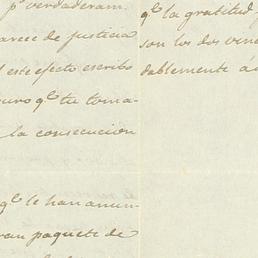 pr verdaderam.
arece de justicia
l este efecto escribo
uro qe. tu toma-
la consecucion
qe. le han anun-
ran paquete de
qe. la gratitud y
son los dos vinc
dablemente á